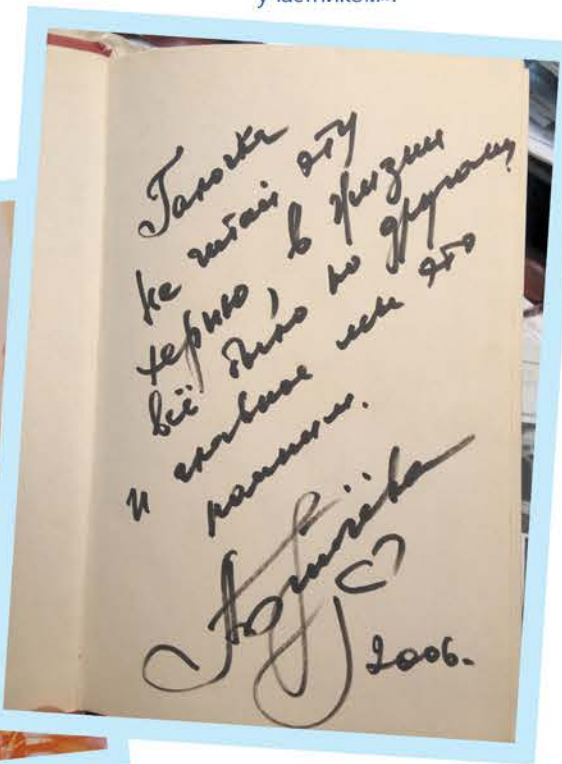 участником».
Галочка
не читай эту
херню, в жизни
всё было по другому,
и главное мы это
помним.
2006.